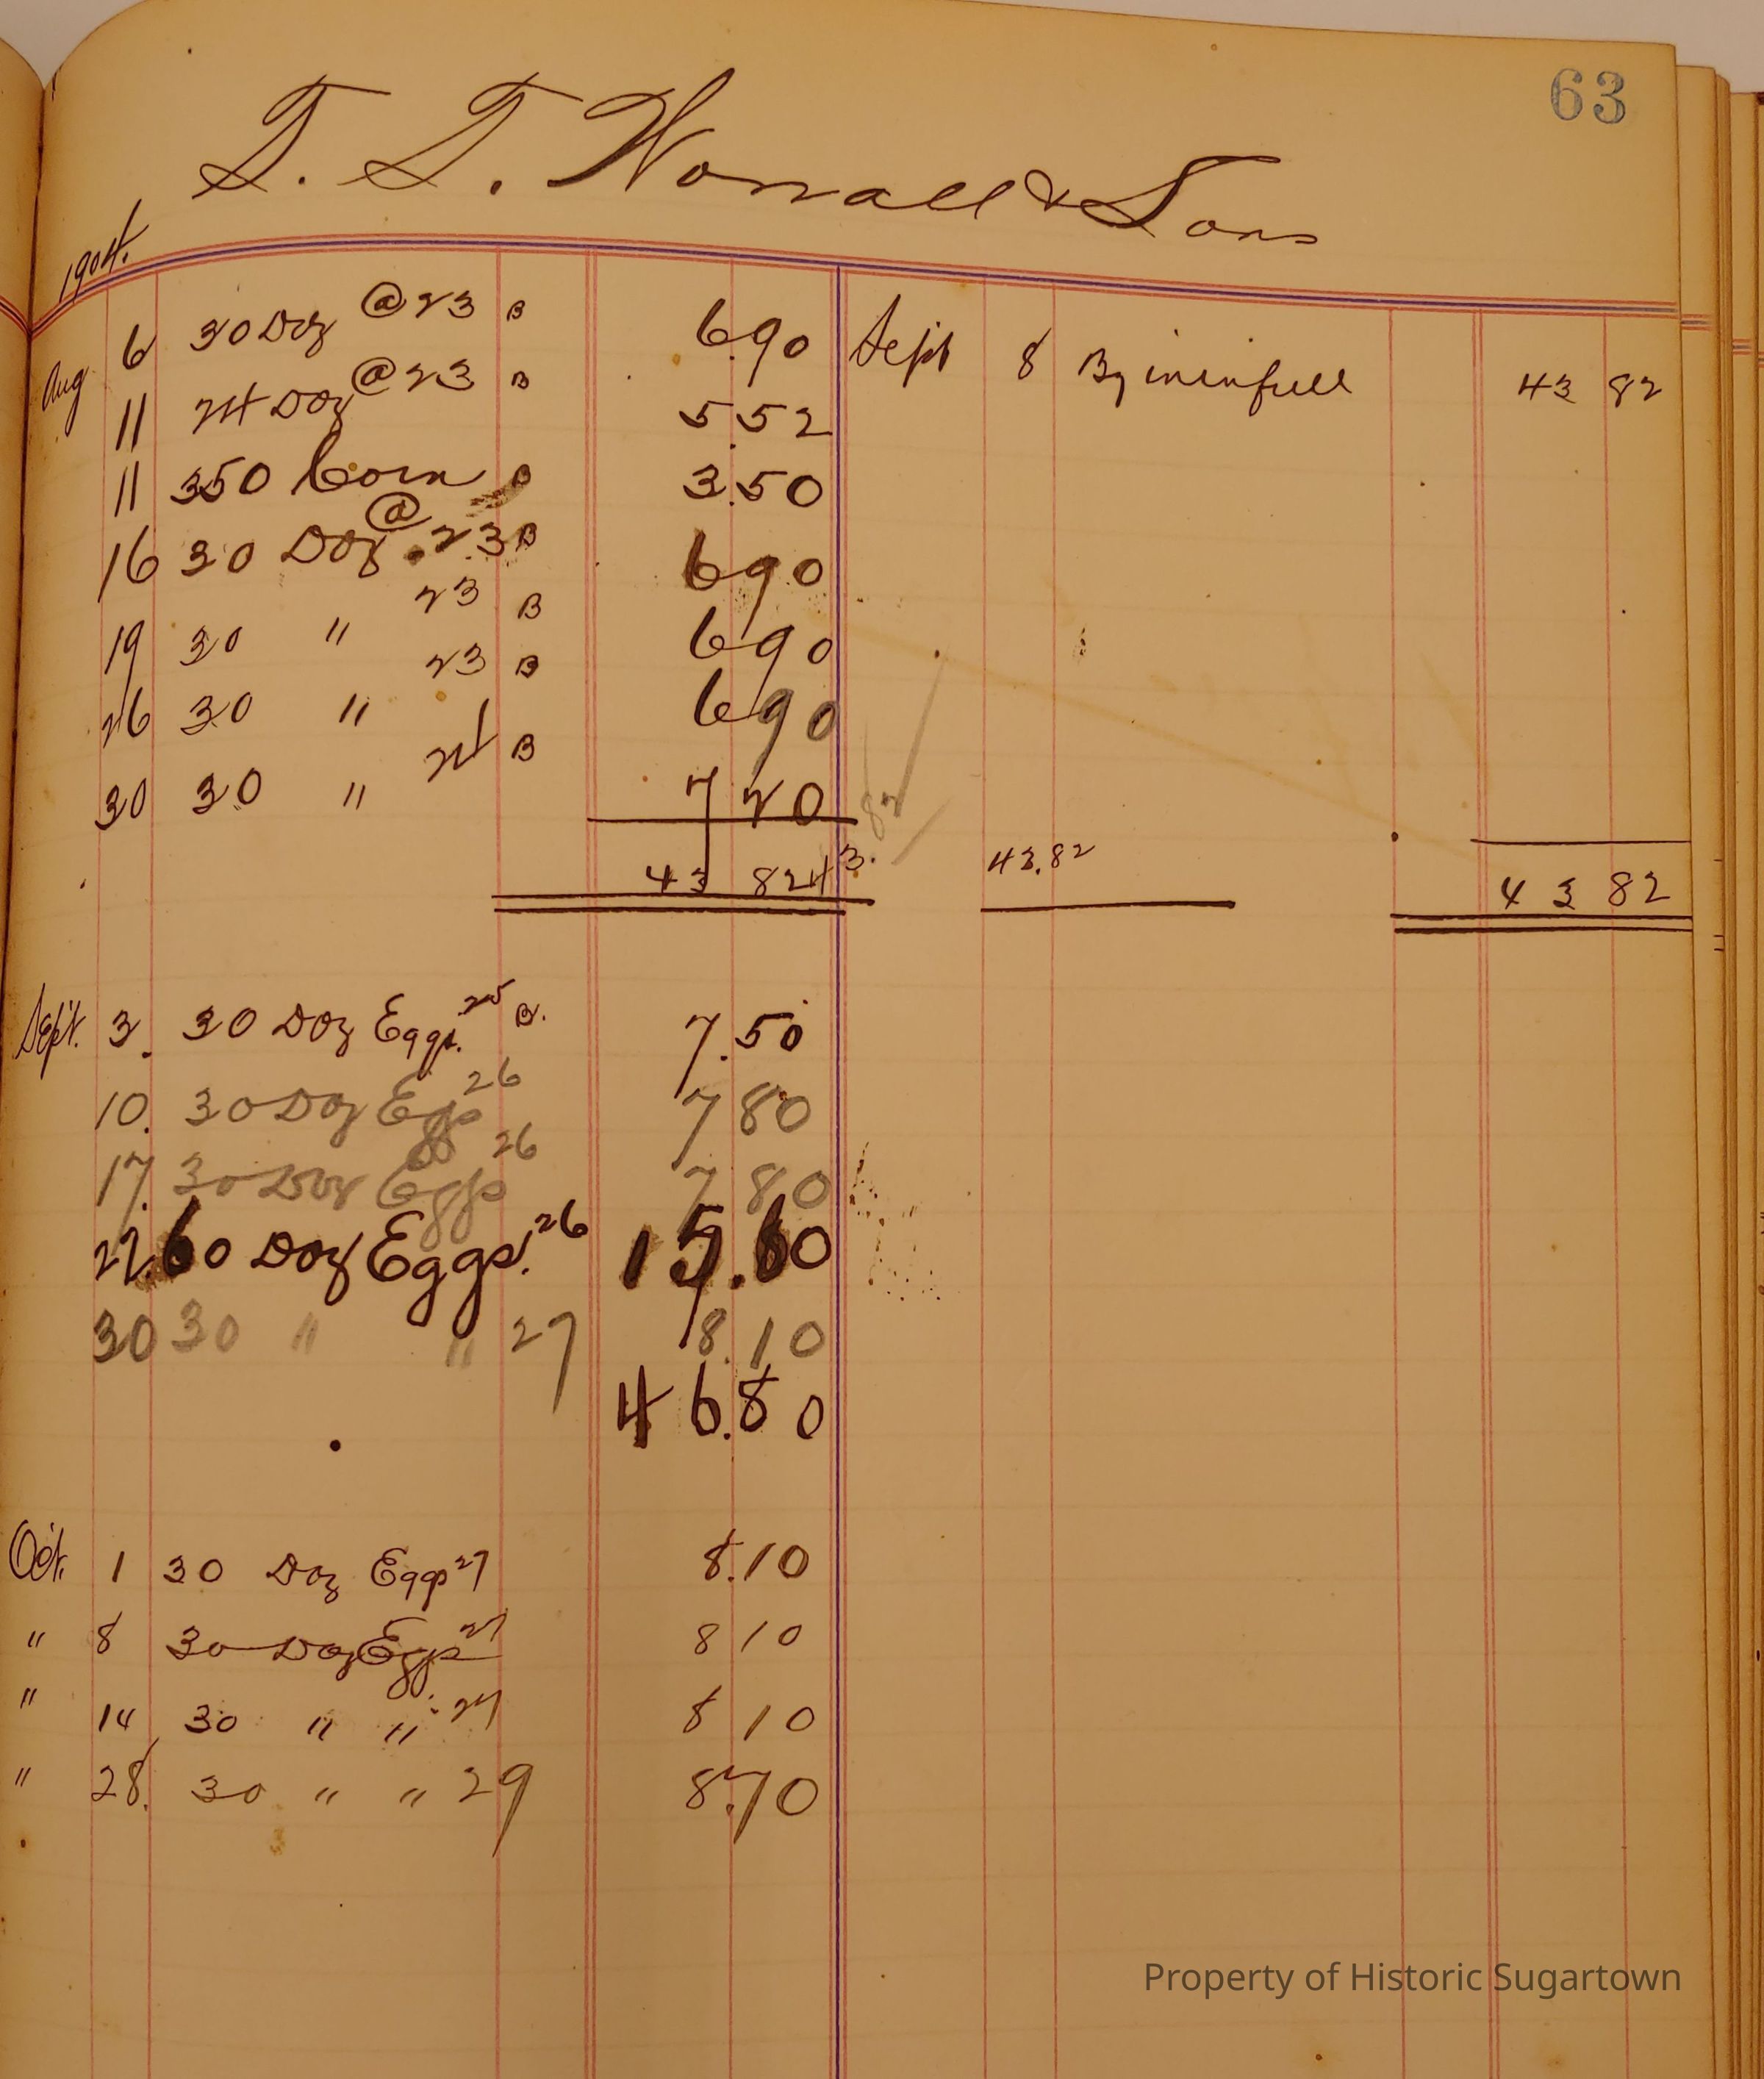 63
T. T. Worrall & Sons
1904.
Aug 6 30 Doz @ 23 B 6.90 Sept 8 By in full 43 82
11 24 Doz @ 23 B 5.52
11 350 Corn B 3.50
16 30 Doz @ .23 B 6 90
19 30 " 23 B 6 90
26 30 " 23 B 6 90
30 30 " 24 B 7 20
43 82 43.82 43.82 43 82
Sept. 3. 30 Doz Eggs. 25 B. 7.50
10. 30 Doz Eggs 26 7 80
17. 30 Doz Eggs 26 7 80
22. 60 Doz Eggs. 26 15.60
30 30 " " 27 8.10
46.80
Oct. 1 30 Doz Eggs 27 8.10
" 8 30 Doz Eggs 27 8 10
" 14 30 " " 27 8 10
" 28. 30 " " 29 8.70
Property of Historic Sugartown